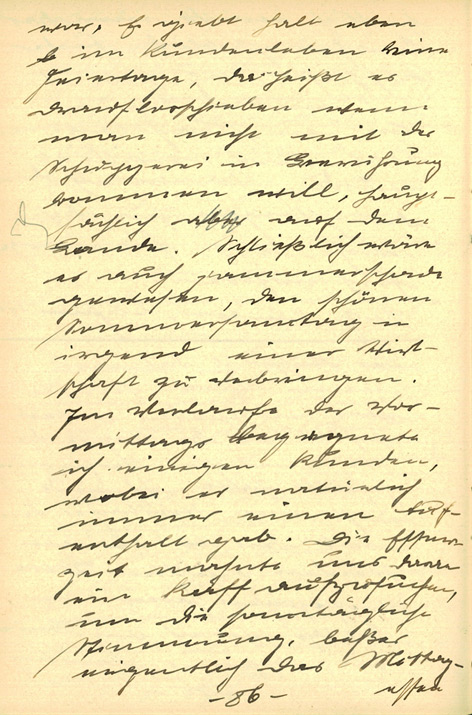 war, E giebt halt eben
im Kundenleben keine
Feiertage, da heißt es
drauflosschieben wenn
man nicht mit der
in Berührung
kommen will, haupt-
sächlich auf dem
Lande. Schließlich wäre
es auch jammerschade
gewesen, den schönen
Sommersonntag in
irgend einer Wirt-
schaft zu verbringen.
Im Verlaufe des Vor-
mittags begegnete
ich einigen Kunden,
wobei es natürlich
immer einen Auf-
enthalt gab. Die Essens-
zeit mahnte uns dann
ein Kaff aufzusuchen,
um die sonntägliche
Stimmung, beßer
eigentlich das Mittag-
essen
-86-